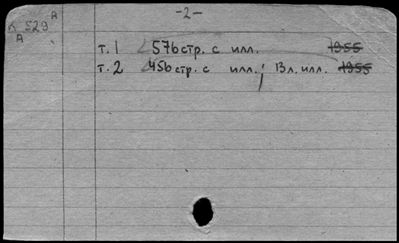 -2-
А
К 529
А
т. 1 576 стр. с илл. 1955
т. 2 456 стр. с илл.; 13 л. илл. 1955